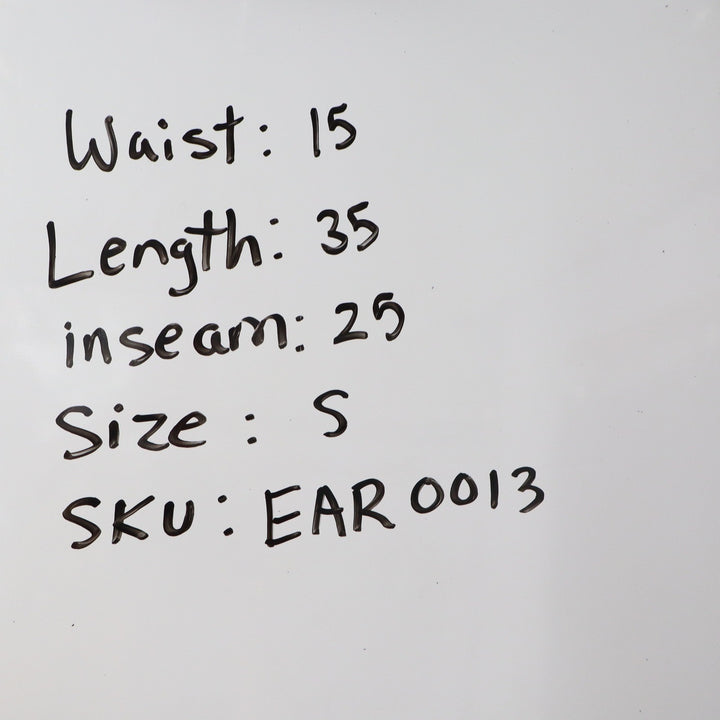 Waist: 15
Length: 35
inseam: 25
Size: S
SKU: EAR0013